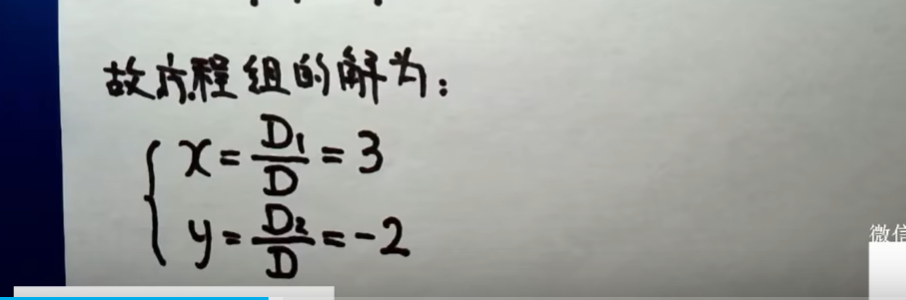 故方程组的解为:
x = D₁/D = 3
y = D₂/D = -2
微信